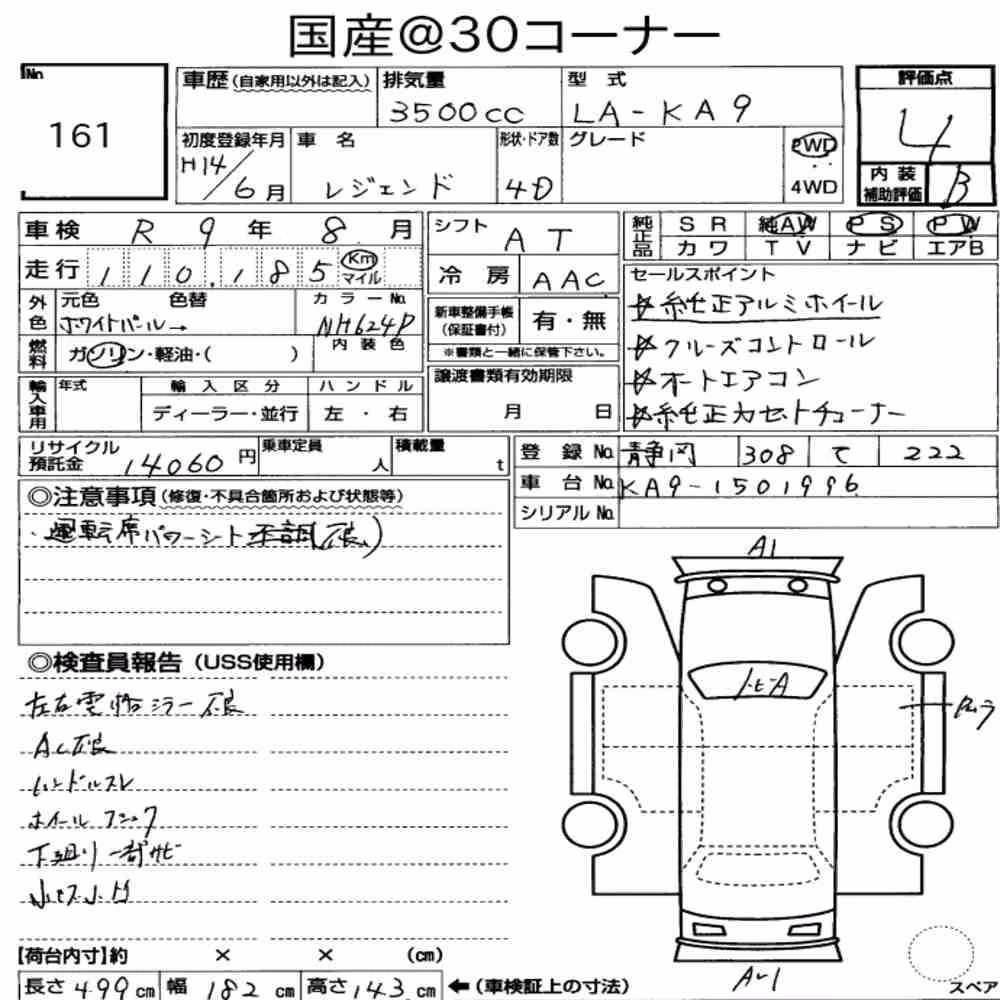 国産@30コーナー
No
161
車歴(自家用以外は記入)
排気量
3500cc
型式
LA-KA9
評価点
4
初度登録年月
H14/6月
車名
レジェンド
形状・ドア数
4D
グレード
2WD
4WD
内装
補助評価
B
車検 R 9年 8月
シフト
AT
純正品
SR 純AW PS PW
カワ TV ナビ エアB
走行 110,185 Km
マイル
冷房 AAC
セールスポイント
☆純正アルミホイール
☆クルーズコントロール
☆オートエアコン
☆純正カセットチューナー
外色
元色 色替
ホワイトパール→
カラーNo.
NH624P
新車整備手帳
(保証書付)
有・無
※書類と一緒に保管下さい。
燃料
ガソリン・軽油・( )
内装色
譲渡書類有効期限
月 日
輸入車用
年式
輸入区分
ディーラー・並行
ハンドル
左・右
リサイクル
預託金 14060円
乗車定員
人
積載量
t
登録No. 静岡 308 て 222
車台No. KA9-1501996
シリアルNo.
◎注意事項(修復・不具合箇所および状態等)
・運転席パワーシート不調(不良)
◎検査員報告(USS使用欄)
左右電格ミラー不良
AC不良
ハンドルスレ
ホイールフニック
下廻り一部サビ
A1
トビA
A-1
スペア
【荷台内寸】約 × × (cm)
長さ499cm 幅182cm 高さ143cm ←(車検証上の寸法)